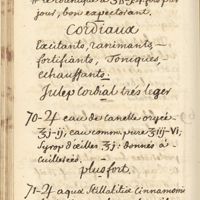 jour, bon expectorant.
Cordiaux
Excitants, ranimants
fortifiants, Toniques,
echauffants.
Julep Cordial très leger
70-24 eau de Canelle orgée
ʒj-ij, eau comm. pure ℥iij-vj;
Syrop d'œillet ℥j: donnés à
cuillerées.
plus fort.
71-24 aqua Stillatitia Cinnamomi